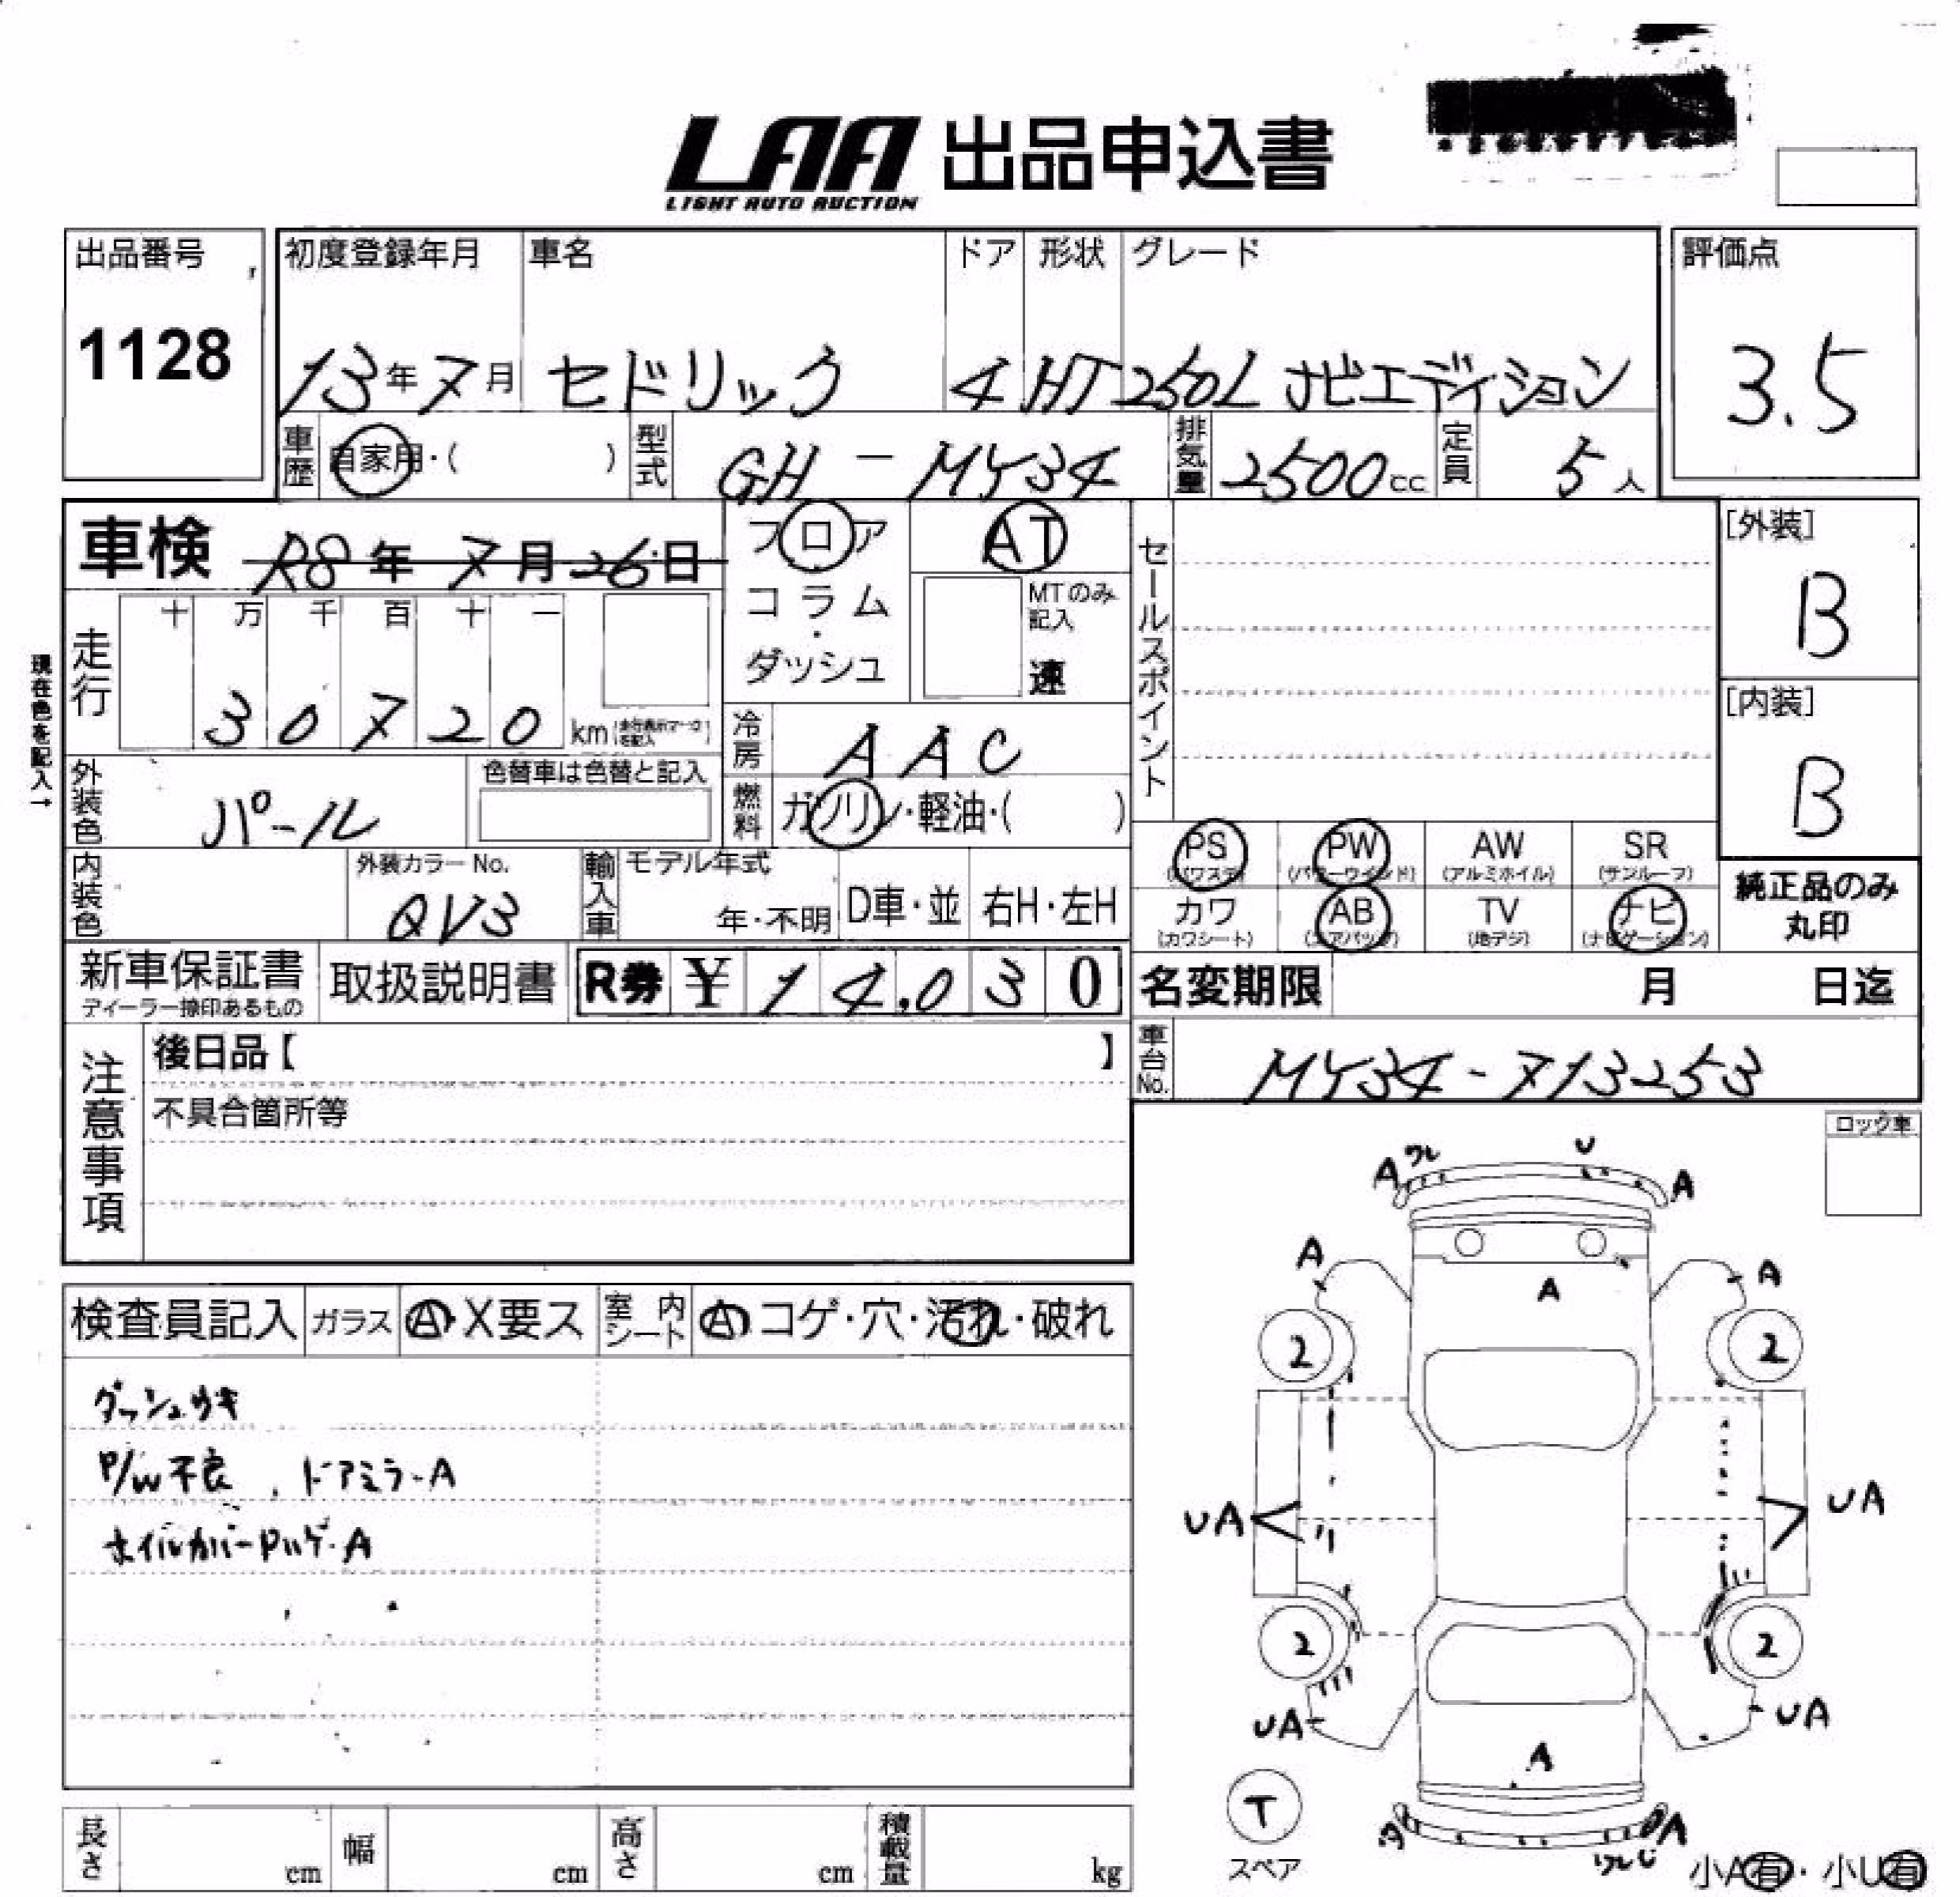 LAA 出品申込書
LIGHT AUTO AUCTION
出品番号
1128
初度登録年月 車名 ドア 形状 グレード
13年7月 セドリック 4 HT 250L ナビエディション
評価点
3.5
車歴 自家用・( ) 型式 GH-MY34 排気量 2500cc 定員 5人
車検 R8年7月26日
フロア AT
コラム・ダッシュ
MTのみ記入
速
セールスポイント
[外装]
B
[内装]
B
現在色を記入→
走行
十 万 千 百 十 一
30720 km
冷房 AAC
外装色 パール
色替車は色替と記入
燃料 ガソリン・軽油・( )
PS (パワステ) PW (パワーウインド) AW (アルミホイル) SR (サンルーフ)
カワ (カワシート) AB (エアバッグ) TV (地デジ) ナビ (ナビゲーション)
純正品のみ
丸印
内装色
外装カラーNo.
QV3
輸入車 モデル年式
年・不明 D車・並 右H・左H
新車保証書
取扱説明書 R券 ¥ 14,030
名変期限 月 日迄
車台No. MY34-713253
注意事項
後日品【 】
不具合箇所等
ロック車
検査員記入 ガラス A・X要ス 室内シート A コゲ・穴・汚れ・破れ
ダッシュウキ
P/W不良、ドアミラーA
ホイルカバーPハゲ・A
A ワレ U A
A A
A
2 2
UA UA
2 2
UA UA
A
T
スペア
A
小A有・小U有
長さ cm 幅 cm 高さ cm 積載量 kg